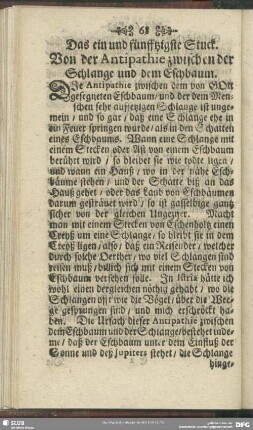 68
Das ein und fünfftzigste Stuck.
Von der Antipathie zwischen der
Schlange und dem Eschbaum.
DIe Antipathie zwischen dem von GOtt
gesegneten Eschbaum / und der dem Men-
schen sehr aufsetzigen Schlange ist unge-
mein / und so gar / daß eine Schlange ehe in
ein Feuer springen würde / als in den Schatten
eines Eschbaums. Wann eine Schlange mit
einem Stecken oder Ast von einem Eschbaum
berührt wird / so bleibet sie wie todte ligen /
und wann ein Hauß / wo in der nähe Esch-
bäume stehen / und der Schatte biß an das
Hauß gehet / oder das Laub von Eschbäumen
darum gesträuet wird / so ist gasselbige gantz
sicher von der gleichen Ungeziner. Macht
man mit einem Stecken von Eschenholtz einen
Creyß um eine Schlange / so bleibt sie in dem
Creyß ligen / also / daß ein Reisender / welcher
durch solche Oerther / wo viel Schlangen sind
reisen muß / billich sich mit einem Stecken von
Eschbaum versehen solle. In Istria hätte ich
wohl einen dergleichen nöthig gehabt / wo die
Schlangen offt wie die Vögel / über die We-
ge gesprungen sind / und mich erschröckt ha-
ben. Die Ursach dieser Antipathie zwischen
dem Eschbaum und der Schlange / bestehet inde-
me / daß der Eschbaum unter dem Einfluß der
Sonne und deß Jupiters stehet / die Schlange
hinge-
SLUB